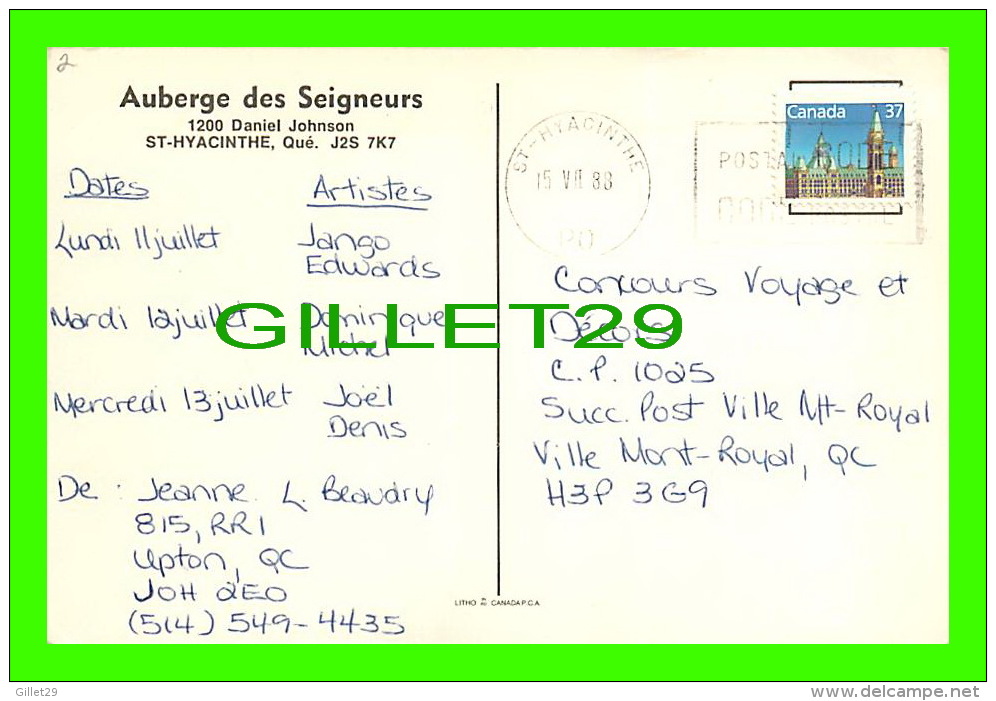 2
Auberge des Seigneurs
1200 Daniel Johnson
ST-HYACINTHE, Qué. J2S 7K7
Dates Artistes
Lundi 11 juillet Jango
Edwards
Mardi 12 juillet Dominique
Michel
Mercredi 13 juillet Joël
Denis
De : Jeanne L. Beaudry
815, RR1
Upton, QC
J0H 2E0
(514) 549-4435
LITHO CANADA P.C.A.
ST-HYACINTHE
15 VII 88
PQ
Canada 37
POSTAL CODE
Concours Voyage et
Décors
C.P. 1025
Succ. Post Ville Mt-Royal
Ville Mont-Royal, QC
H3P 3G9
GILLET29
Gillet29
www.delcampe.net